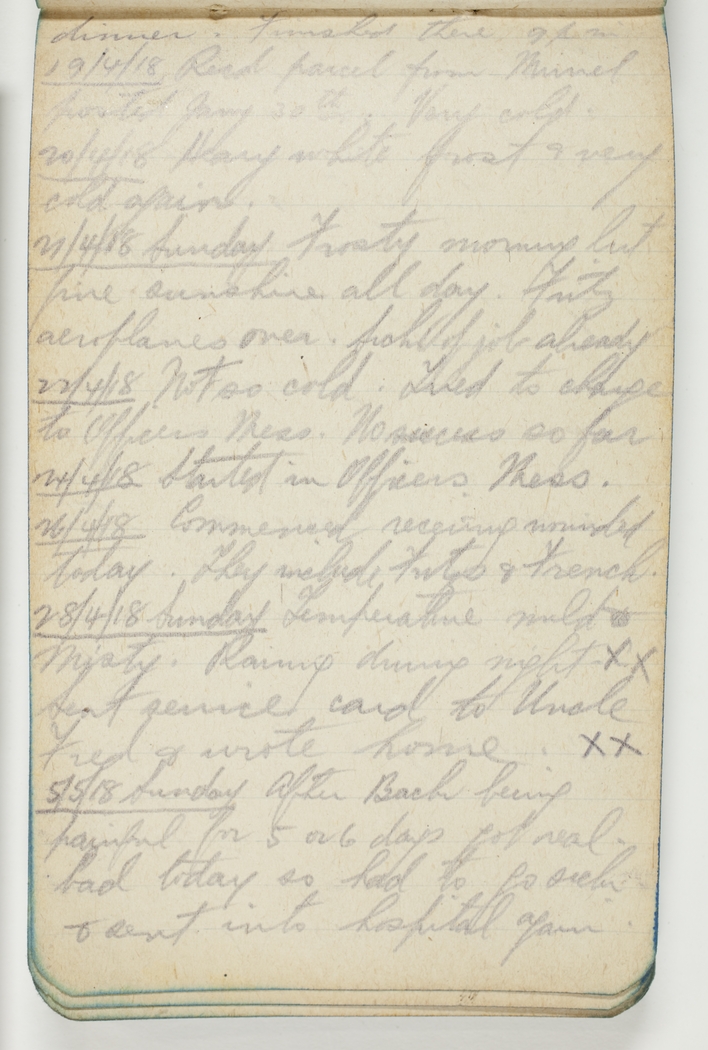 dinner. Finished there 9 p m
19/4/18 Recd parcel from Muriel
posted Jany 30th. Very cold.
20/4/18 Heavy white frost & very
cold again.
21/4/18 Sunday Frosty morning but
fine sunshine all day. Fritz
aeroplanes over. Sick of job already
22/4/18 Not so cold. Tried to change
to Officers Mess. No success so far
24/4/18 Started in Officers Mess.
26/4/18 Commenced receiving wounded
today. They include Fritzs & French.
28/4/18 Sunday Temperature mild &
Misty. Raining during night XX
Sent service card to Uncle
Fred & wrote home. XX
5/5/18 Sunday After Back being
painful for 5 or 6 days got real
bad today so had to go sick
& sent into hospital again